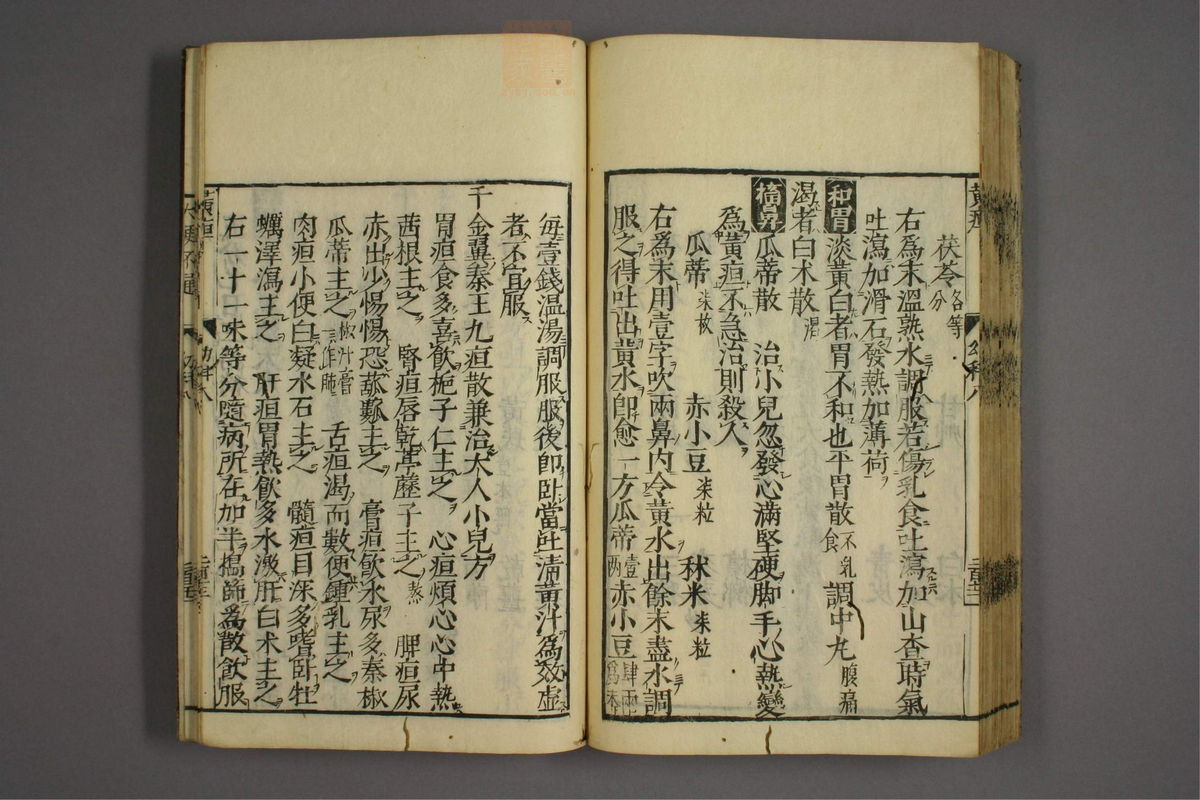 茯苓各等分
右為末溫熟水調服若傷乳食吐瀉加山查時氣
吐瀉加滑石發熱加薄荷
和胃淡黃白者胃不和也平胃散不乳食調中丸腹痛
渴者白朮散渴
搐鼻瓜蒂散 治小兒忽發心滿堅硬脚手心熱變
為黃疸不急治則殺人
瓜蒂柒枚 赤小豆柒粒 秫米柒粒
右為末用壹字吹兩鼻內令黃水出餘末盡水調
服之得吐出黃水即愈一方瓜蒂壹兩赤小豆肆兩為末
每壹錢溫湯調服服後即臥當吐清黃汁為效虛
者不宜服
千金翼秦王九疸散兼治大人小兒方
胃疸食多喜飲梔子仁主之 心疸煩心心中熱
茜根主之 腎疸唇乾葶藶子主之熬 脾疸尿
赤出少惕惕恐括蔞主之 膏疸飲水尿多秦椒
瓜蒂主之椒汗膏一作肺 舌疸渴而數便鍾乳主之
肉疸小便白凝水石主之 髓疸目深多嗜臥牡
蠣澤瀉主之 肝疸胃熱飲多水激肝白朮主之
右一十一味等分隨病所在加半擣篩為散飲服